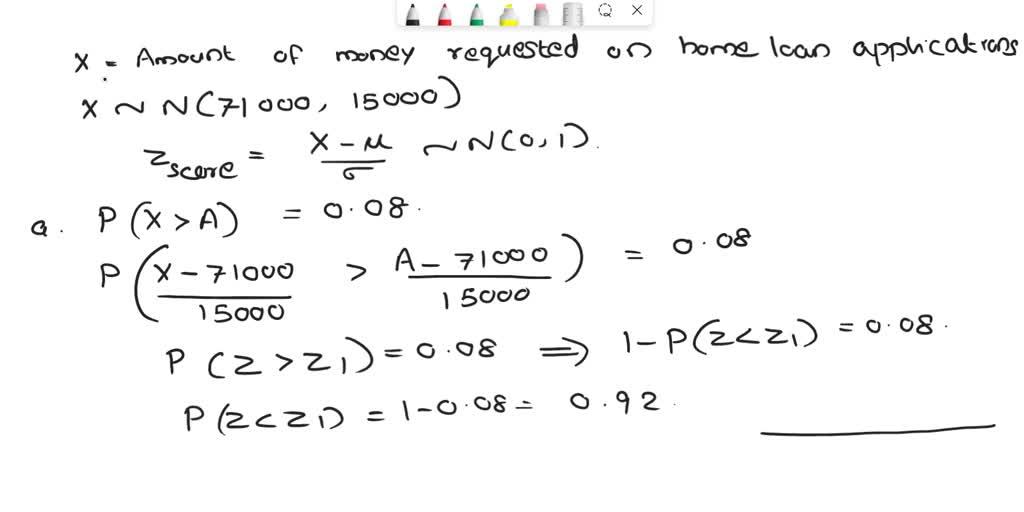 X = Amount of money requested on home loan applications
X ~ N(71000, 15000)
Zscore = X - μ / σ ~ N(0,1).
a. P(X > A) = 0.08.
P(X - 71000 / 15000 > A - 71000 / 15000) = 0.08
P(Z > Z1) = 0.08 ⟹ 1 - P(Z < Z1) = 0.08.
P(Z < Z1) = 1 - 0.08 = 0.92.